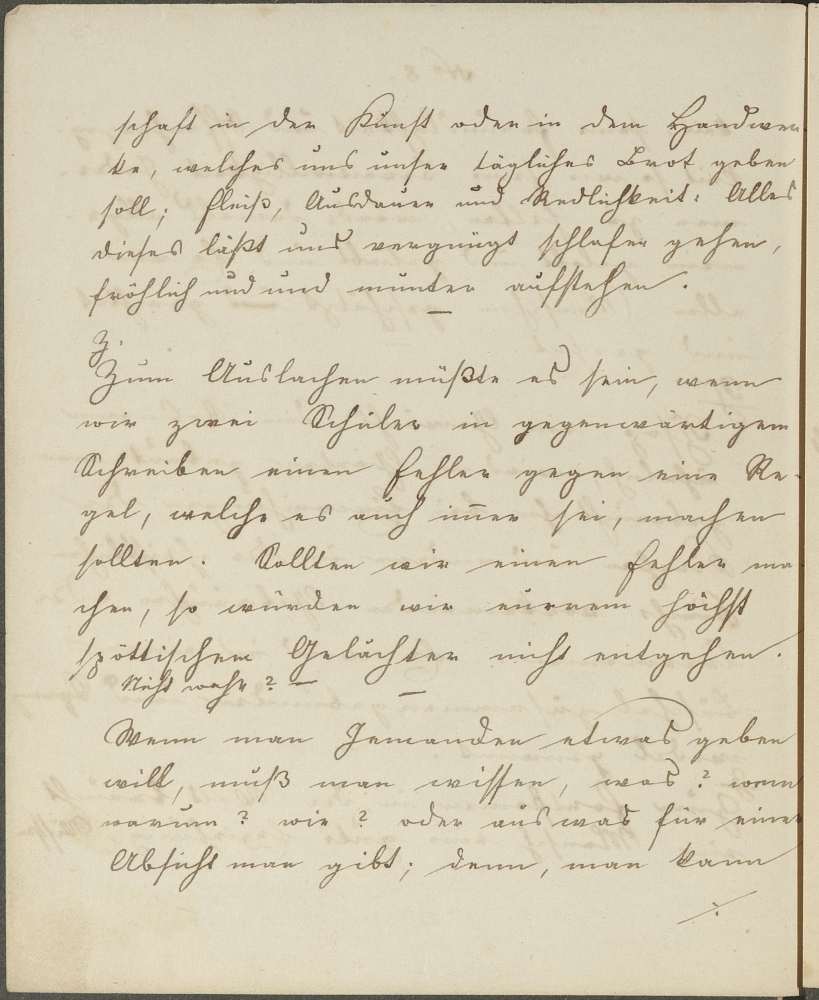 schaft in der Kunst oder in dem Handwer-
ke, welches uns unser tägliches Brot geben
soll; Fleiß, Ausdauer und Redlichkeit: Alles
dieses läßt uns vergnügt schlafen gehen,
fröhlich und und munter aufstehen.
Z.
Zum Auslachen müßte es sein, wenn
wir zwei Schüler in gegenwärtigem
Schreiben einen Fehler gegen eine Re-
gel, welche es auch im̅er sei, machen
sollten. Sollten wir einen Fehler ma-
chen, so würden wir eurrem höchst
spöttischem Gelächter nicht entgehen.
Nicht wahr? —
Wenn man Jemanden etwas geben
will, muß man wissen, was? wem
warum? wie? oder aus was für einer
Absicht man gibt; denn, man kann
./.